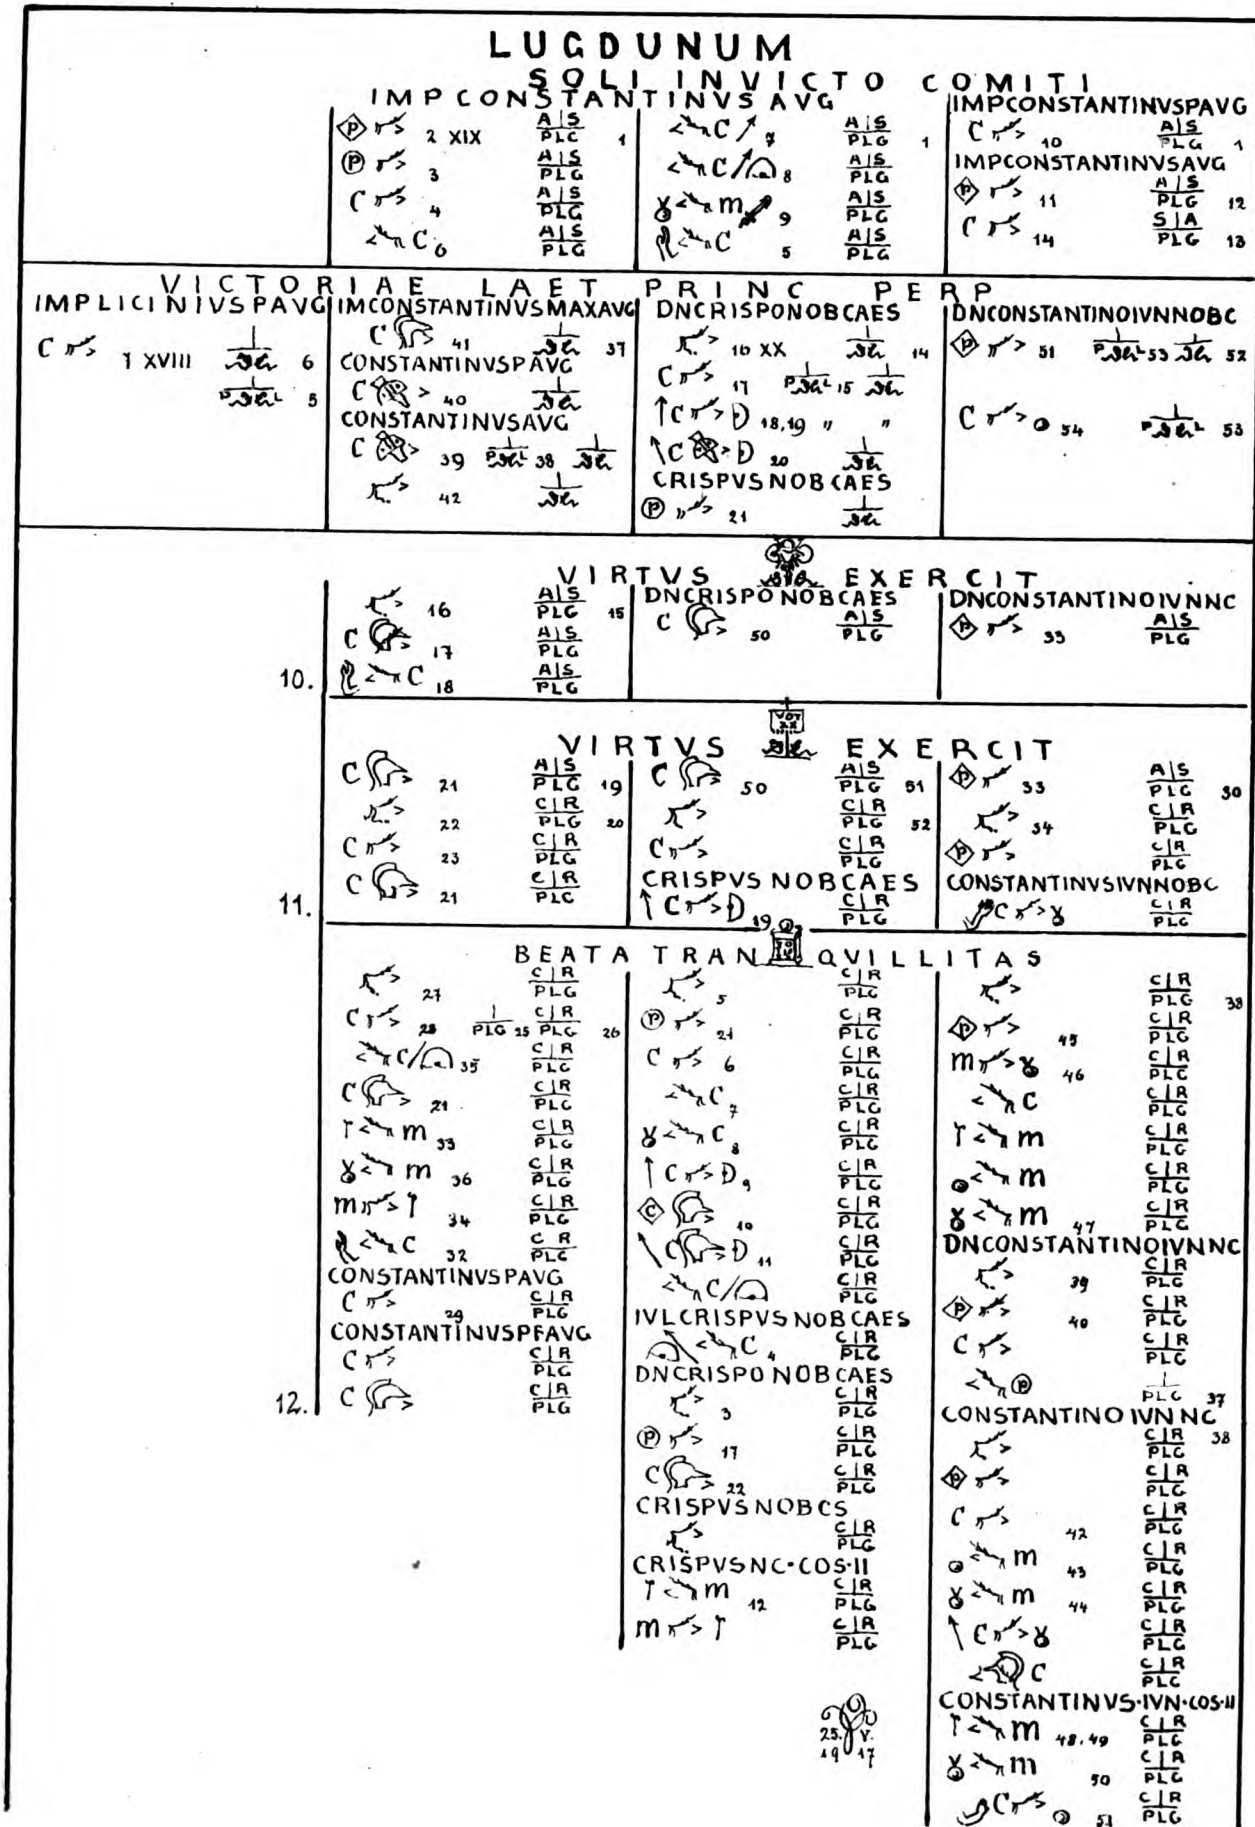 LUGDUNUM
SOLI INVICTO COMITI
IMPCONSTANTINVS AVG
P 2 XIX A|S PLC 1
P 3 A|S PLG
C 4 A|S PLG
C 6 A|S PLG
C 7 A|S PLG 1
C 8 A|S PLG
m 9 A|S PLG
C 5 A|S PLG
IMPCONSTANTINVSPAVG
C 10 A|S PLG 1
IMPCONSTANTINVSAVG
P 11 A|S PLG 12
C 14 S|A PLG 13
VICTORIAE LAET PRINC PERP
IMPLICINIVSPAVG
C 1 XVIII 6
P L 5
IMCONSTANTINVSMAXAVG
C 41 37
CONSTANTINVSPAVG
C 40
CONSTANTINVSAVG
C 39 P L 38
42
DNCRISPONOBCAES
16 XX 14
C 17 P L 15
C D 18,19 " "
C D 20
CRISPVSNOBCAES
P 21
DNCONSTANTINOIVNNOBC
P 51 P L 53 52
C 54 P L 53
VIRTVS EXERCIT
16 A|S PLG 15
C 17 A|S PLG
10. C 18 A|S PLG
DNCRISPONOBCAES
C 50 A|S PLG
DNCONSTANTINOIVNNC
P 33 A|S PLG
VOT XX
VIRTVS EXERCIT
C 21 A|S PLG 19
22 C|R PLG 20
C 23 C|R PLG
11. C 21 C|R PLC
C 50 A|S PLG 51
C|R PLG 52
C C|R PLG
CRISPVS NOBCAES
C D 19 C|R PLG
P 33 A|S PLG 30
34 C|R PLG
P C|R PLG
CONSTANTINVSIVNNOBC
C C|R PLG
BEATA TRANQVILLITAS
27 C|R PLG
C 28 PLG 25 C|R PLG 26
C 35 C|R PLG
C 21 C|R PLG
m 33 C|R PLG
m 36 C|R PLG
m 34 C|R PLG
C 32 C R PLC
CONSTANTINVSPAVG
C 29 C|R PLG
CONSTANTINVSPFAVG
C C|R PLG
12. C C|R PLG
5 C|R PLG
P 21 C|R PLG
C 6 C|R PLG
C 7 C|R PLG
C 8 C|R PLG
C D 9 C|R PLG
C 10 C|R PLG
C D 11 C|R PLG
C C|R PLG
IVLCRISPVSNOBCAES
C 4 C|R PLG
DNCRISPONOBCAES
3 C|R PLG
P 17 C|R PLG
C 22 C|R PLG
CRISPVSNOBCS
C|R PLG
CRISPVSNC·COS·II
m 12 C|R PLG
m C|R PLG
C|R PLG 38
P 45 C|R PLG
m 46 C|R PLG
C C|R PLG
m C|R PLG
m C|R PLG
m 47 C|R PLG
DNCONSTANTINOIVNNC
39 C|R PLG
P 40 C|R PLG
C C|R PLG
P PLG 37
CONSTANTINOIVNNC
C|R PLG 38
P C|R PLG
C 42 C|R PLG
m 43 C|R PLG
m 44 C|R PLG
C C|R PLG
C C|R PLC
CONSTANTINVS·IVN·COS·II
m 48,49 C|R PLG
m 50 C|R PLG
C 51 C|R PLG
25. V.
1917